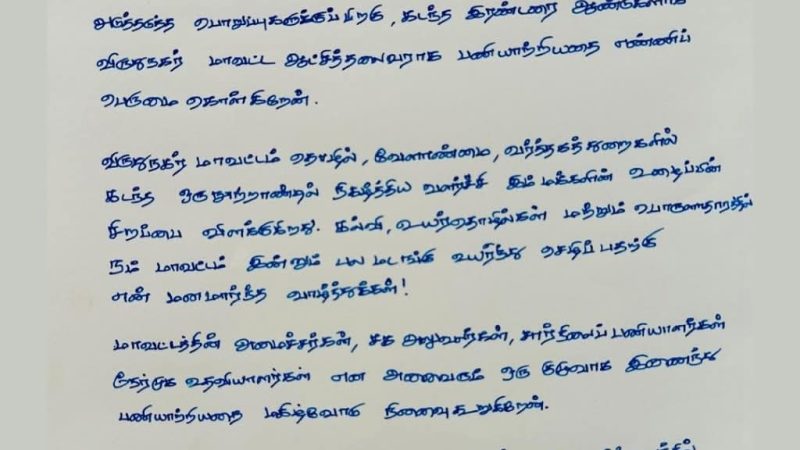 அடுத்தடுத்த பொறுப்புகளுக்குப்பிறகு, கடந்த இரண்டரை ஆண்டுகளாக
விருதுநகர் மாவட்ட ஆட்சித்தலைவராக பணியாற்றியதை எண்ணிப்
பெருமை கொள்கிறேன்.
விருதுநகர் மாவட்டம் தொழில், வேளாண்மை, வர்த்தகத்துறைகளில்
கடந்த ஒருநூற்றாண்டில் நிகழ்த்திய வளர்ச்சி இம்மக்களின் உழைப்பின்
சிறப்பை விளக்குகிறது. கல்வி, உயர்தொழில்கள் மற்றும் பொருளாதாரத்தில்
நம் மாவட்டம் இன்னும் பல மடங்கு உயர்ந்து செழிப்பதற்கு
என் மனமார்ந்த வாழ்த்துக்கள்!
மாவட்டத்தின் அமைச்சர்கள், சக அலுவலர்கள், சார்நிலைப் பணியாளர்கள்
நேர்முக உதவியாளர்கள் என அனைவரும் ஒரு குழுவாக இணைந்து
பணியாற்றியதை மகிழ்வோடு நினைவு கூறுகிறேன்.